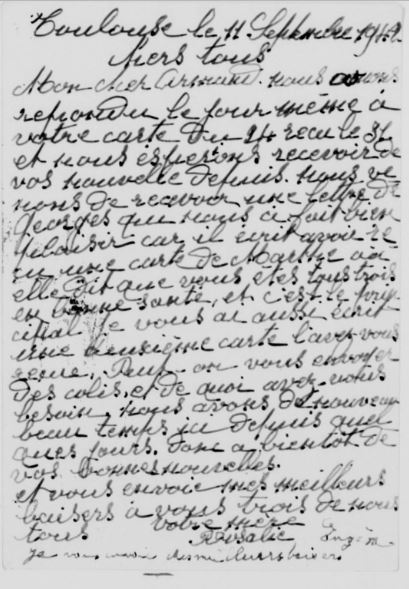 Toulouse le 11 Septembre 1942
Chers tous
Mon cher Armand. nous avons
repondu le jour même à
votre carte du 24 recu le 31
et nous espérons recevoir de
vos nouvelle depuis. nous ve
nons de recevoir une lettre de
Georges qui nous a fait bien
plaisir car il ecrit avoir re
cu une carte de Marthe où
elle dit que vous etes tous trois
en bonne santé, et c'est le prin
cipal. je vous ai aussi ecrit
une deuxième carte l'avez vous
recue. Peut on vous envoyer
des colis, et de quoi avez-vous
besoin, nous avons de nouveau
beau temps ici depuis quel
ques jours. donc a bientôt de
vos bonnes nouvelles.
et vous envoie mes meilleurs
baisers à vous trois de nous
tous votre mère
Rosalie
Je vous envoie mes meilleurs baisers